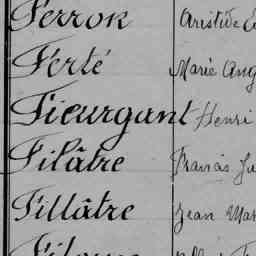 Ferron Aristide
Ferté Marie Aug
Fieurgant Henri
Filâtre Francis Ju
Fillâtre Jean Mar